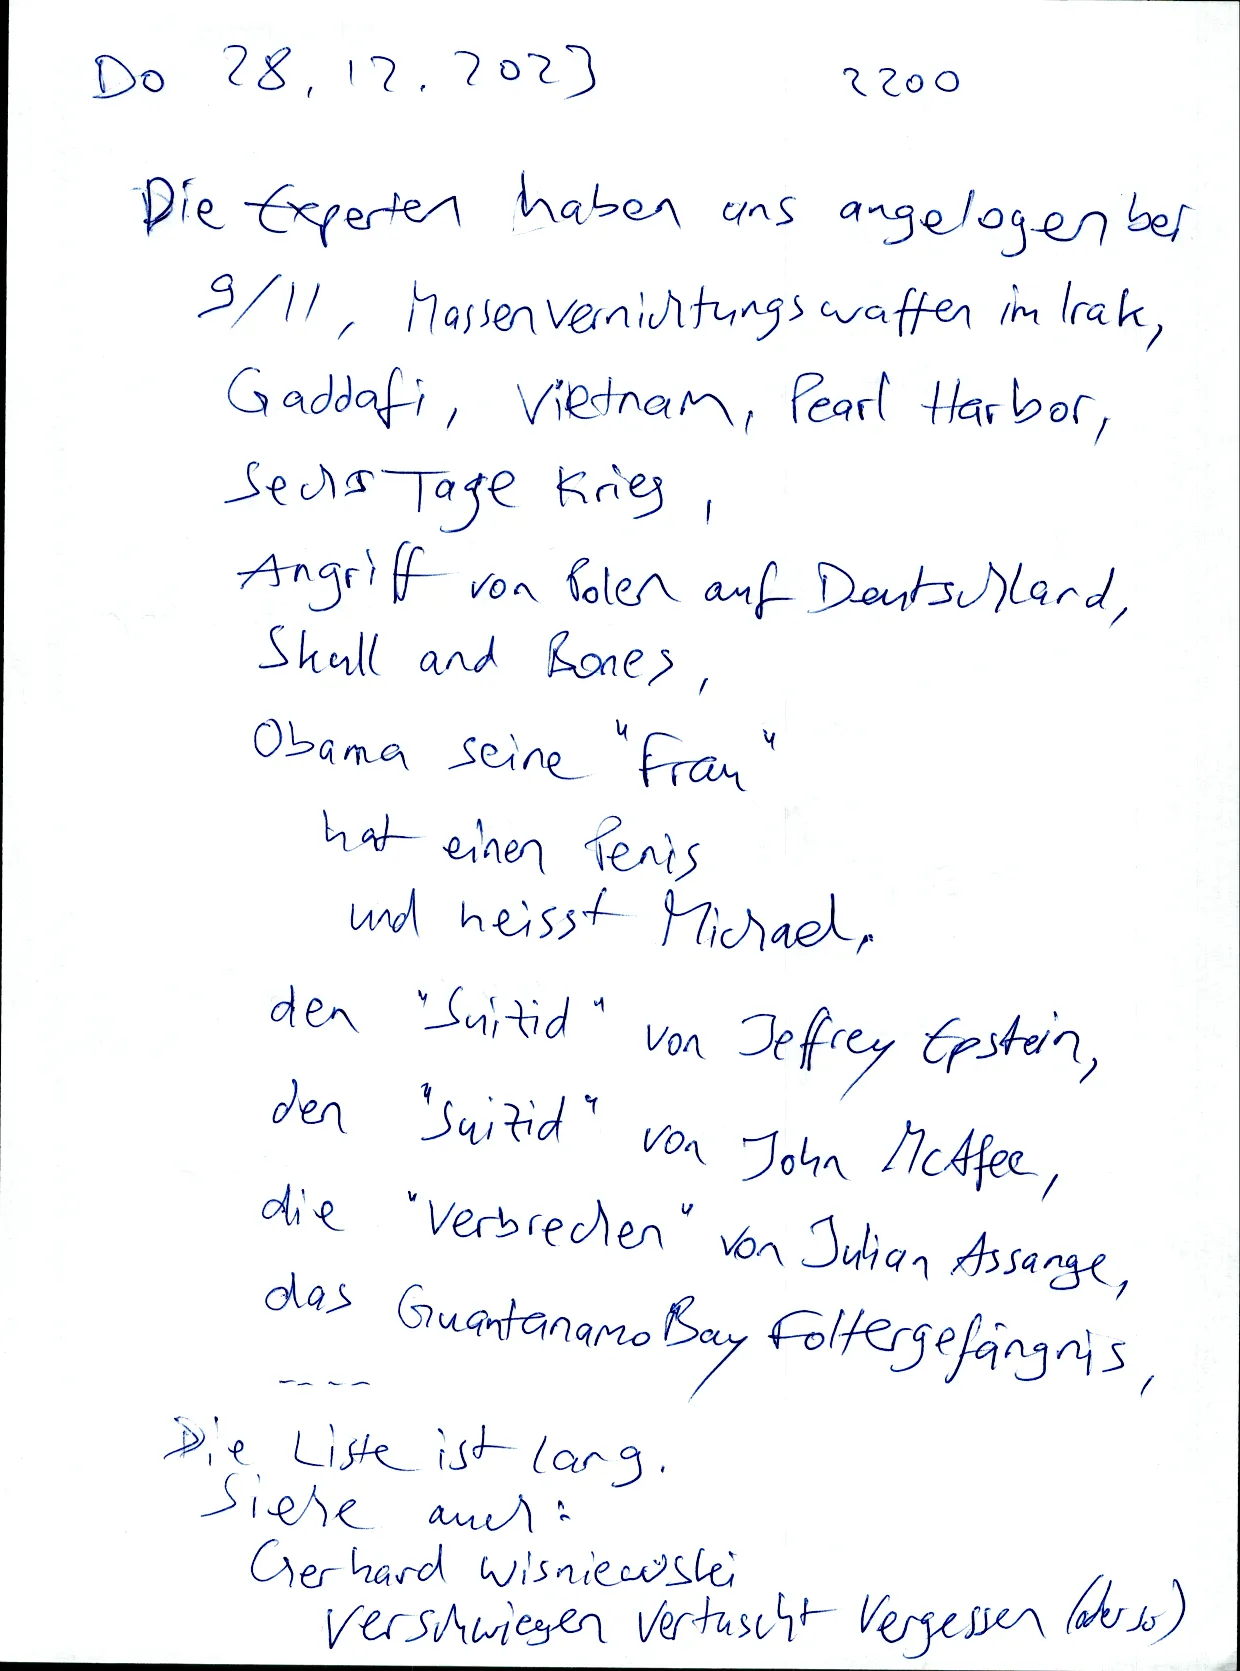 Do 28.12.2023 2200
Die Experten haben uns angelogen bei
9/11, Massenvernichtungswaffen im Irak,
Gaddafi, Vietnam, Pearl Harbor,
Sechs Tage Krieg,
Angriff von Polen auf Deutschland,
Skull and Bones,
Obama seine "Frau"
hat einen Penis
und heisst Michael,
den "Suizid" von Jeffrey Epstein,
den "Suizid" von John McAfee,
die "Verbrechen" von Julian Assange,
das Guantanamo Bay Foltergefängnis,
----
Die Liste ist lang.
Siehe auch:
Gerhard Wisniewski
Verschwiegen Vertuscht Vergessen (oder so)